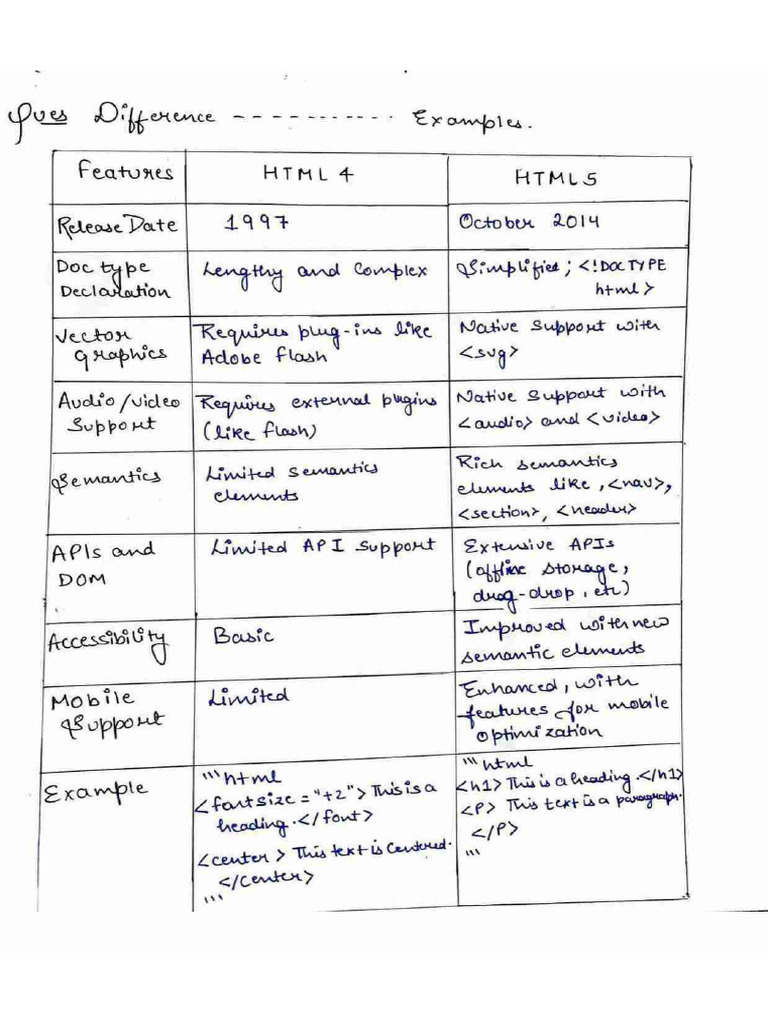 Ques Difference ----------- Examples.
Features HTML 4 HTML5
Release Date 1997 October 2014
Doctype Lengthy and Complex Simplified; <!DOCTYPE
Declaration html>
Vector Requires plug-ins like Native Support with
Graphics Adobe flash <svg>
Audio/video Requires external plugins Native Support with
Support (like flash) <audio> and <video>
Semantics Limited semantics Rich semantics
elements elements like, <nav>,
<section>, <header>
APIs and Limited API Support Extensive APIs
DOM (offline storage,
drag-drop, etc)
Accessibility Basic Improved with new
semantic elements
Mobile Limited Enhanced, with
Support features for mobile
optimization
Example '''html '''html
<font size = "+2"> This is a <h1> This is a heading.</h1>
heading.</font> <P> This text is a paragraph.
<center> This text is Centered. </P>
</Center> '''
'''